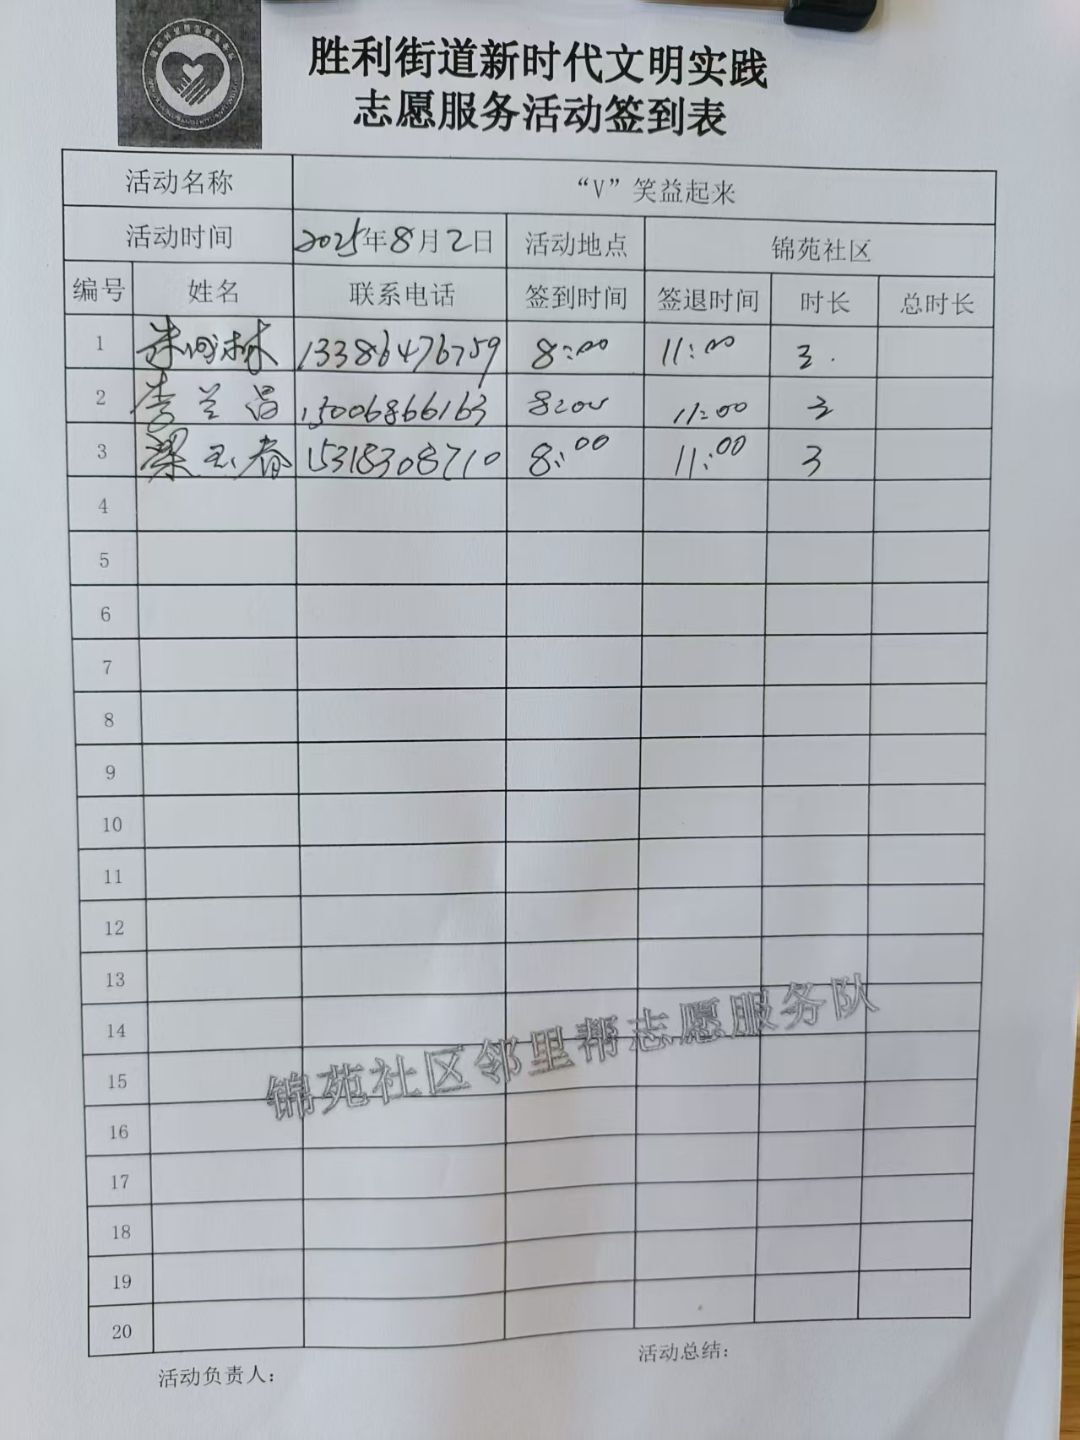 胜利街道新时代文明实践
志愿服务活动签到表
活动名称 “V”笑益起来
活动时间 2025年8月2日 活动地点 锦苑社区
编号 姓名 联系电话 签到时间 签退时间 时长 总时长
1 朱林 13386476759 8:00 11:00 3.
2 李兰昌 15006866163 8:00 11:00 3
3 梁玉春 15318308710 8:00 11:00 3
4
5
6
7
8
9
10
11
12
13
14
15
16
17
18
19
20
锦苑社区邻里帮志愿服务队
活动负责人:
活动总结: